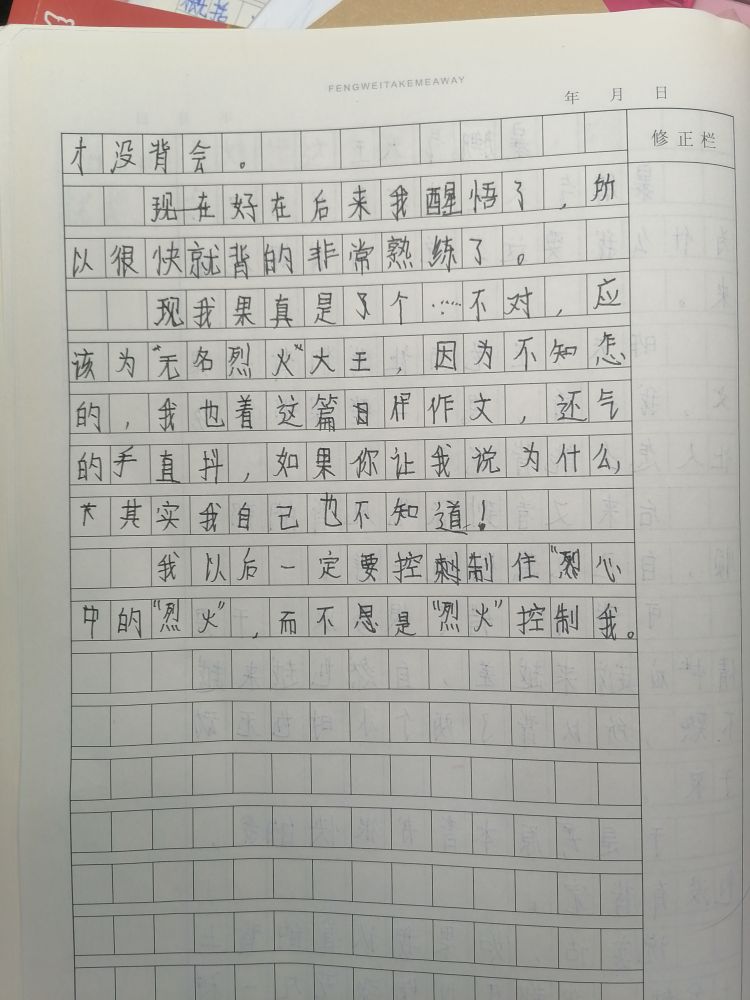 概括
FENGWEITAKEMEAWAY
年 月 日
修正栏
才没背会。
现在好在后来我醒悟了，所
以很快就背的非常熟练了。
现我果真是了个……不对，应
该为“无名烈火”大王，因为不知怎
的，我也着这篇日作作文，还气
的手直抖，如果你让我说为什么，
其实我自己也不知道！
我以后一定要控刺制住“烈心
中的“烈火”，而不思是“烈火”控制我。